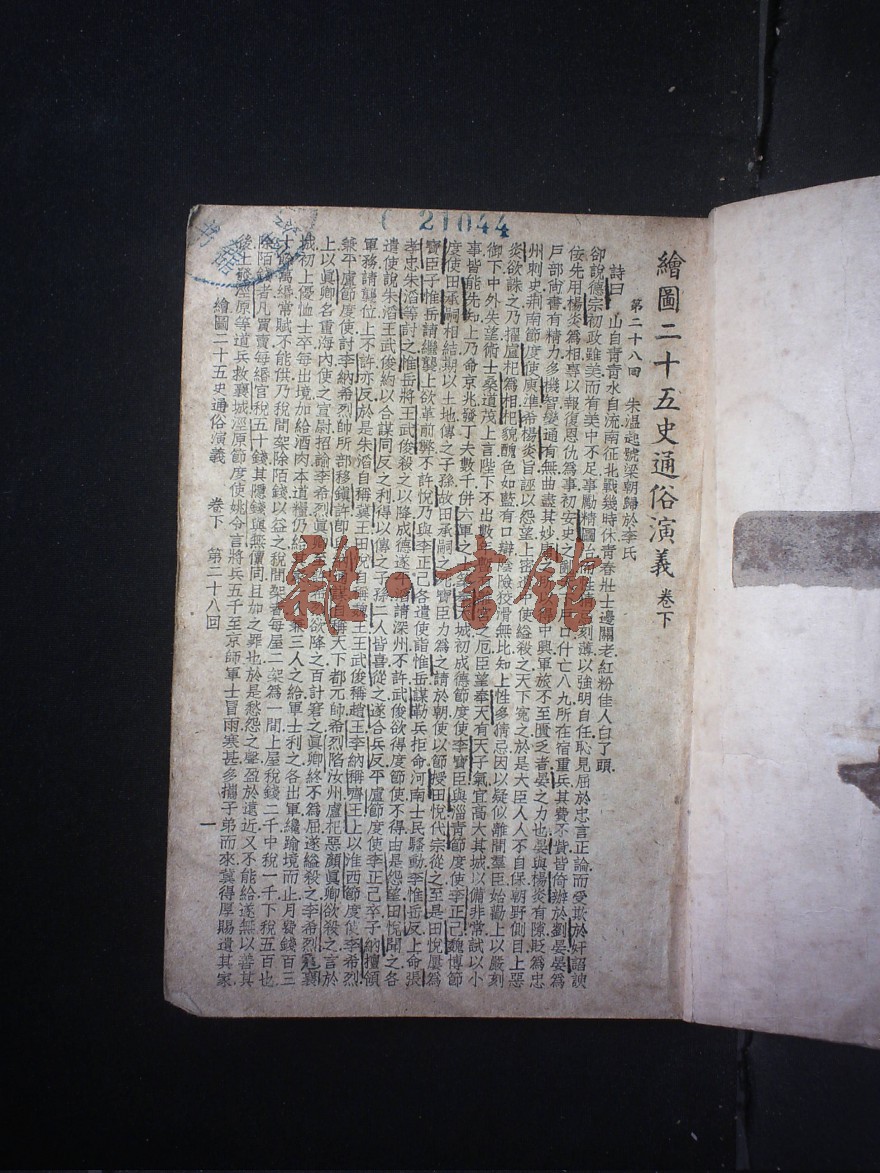 繪圖二十五史通俗演義 卷下
第二十八回 朱溫起號梁朝歸於李氏
詩曰 山自青青水自流南征北戰幾時休青春壯士邊關老紅粉佳人白了頭
卻說德宗初政雖美而有美中不足事勵精圖治而性刻薄以強明自任恥見屈於忠言正論而受欺於奸諂諛
佞先用楊炎為相專以報復恩仇為事初安史之亂戶口什亡八九所在宿重兵其費不貲皆倚辦於劉晏晏為
戶部尚書有精力多機智變通有無曲盡其妙中興軍旅不至匱乏者晏之力也與楊炎有隙貶為忠
州刺史荊南節度使庾準希楊炎旨誣以怨望上密遣中使縊殺之天下冤之於是大臣人人不自保朝野側目上惡
炎欲誅之乃擢盧杞為相杞貌醜色如藍有口辯陰險狡猾無比知上性多猜忌因以疑似離間羣臣始勸上以嚴刻
御下中外失望術士桑道茂上言陛下不出數年有宮之厄臣望奉天有天子氣宜高大其城以備非常試以小
事皆能先知上乃命京兆發丁夫數千併六軍之士城初成德節度使李寶臣與淄青節度使李正己魏博節
度使田承嗣相結期以土地傳之子孫故田承嗣之寶臣力為之請於朝使以節授田悅代宗從之至是田悅屢為
寶臣子惟岳請繼襲上欲革前弊不許悅乃與李正己各遣使詣惟岳謀勒兵拒命河南士民騷動李惟岳反上命張
孝忠朱滔等討之惟岳將王武俊殺之以降成德遂平滔請深州不許武俊欲得度節使不得由是怨望田悅聞之各
遣使說朱滔王武俊約以合謀同反之利得以傳之子孫二人皆喜從之遂合兵反平盧節度使李正己卒子納擅領
軍務請襲位上不許亦反於是朱滔自稱冀王田悅稱魏王王武俊稱趙王李納稱齊王上以淮西節度使李希烈
兼平盧節度使討李納希烈帥所部移鎮許即自稱天下都元帥希烈陷汝州盧杞惡顏真卿欲殺之言於
上以真卿名重海內使之宣慰招諭李希烈真卿至欲降之百計窘之真卿終不為屈遂縊殺之李希烈寇襄
城初上優恤士卒每出境加給酒肉本道糧仍給其家兼三人之給軍士利之各出軍纔踰境而止月費錢百三
十餘萬緡常賦不能供乃稅間架除陌錢以益之稅間架者每屋二架為一間上屋稅錢二千中稅一千下稅五百也
除陌錢者凡買賣每緡官稅五十錢其隱錢與無價同且加之罪也於是愁怨之聲盈於遠近又不能給遂無以善其
後上發涇原等道兵救襄城涇原節度使姚令言將兵五千至京師軍士冒雨寒甚多攜子弟而來冀得厚賜遺其家
繪圖二十五史通俗演義 卷下 第二十八回 一
21044
雜·書館